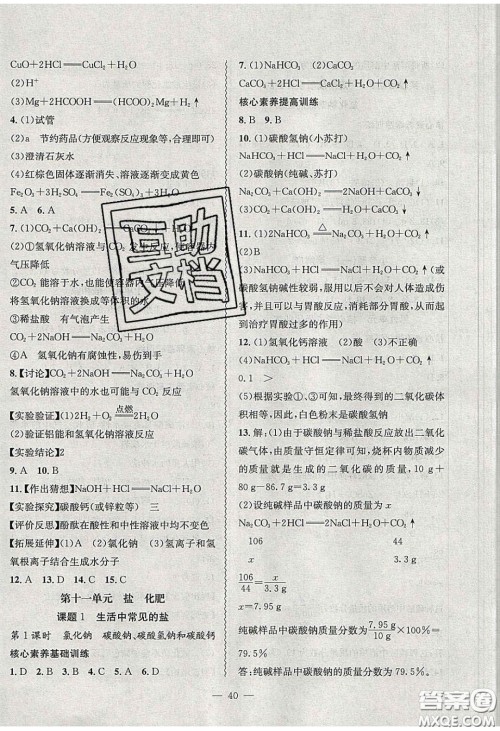 CuO+2HCl══CuCl₂+H₂O
(2)H⁺
(3)Mg+2HCOOH══(HCOO)₂Mg+H₂↑
4. (1)试管
(2)a 节约药品(方便观察反应现象等，合理即可)
(3)澄清石灰水
(4)红棕色固体逐渐消失、溶液逐渐变成黄色
Fe₂O₃+3H₂SO₄══Fe₂(SO₄)₃+3H₂O
5. A 6. A
7. (1)CO₂+Ca(OH)₂══CaCO₃↓+H₂O
(2)①氢氧化钠溶液与CO₂发生反应，使容器内
气压降低
②CO₂能溶于水，也能使容器内气压降低
将氢氧化钠溶液换成等体积的水
③稀盐酸 有气泡产生
CO₂+2NaOH══Na₂CO₃+H₂O
④A 氢氧化钠有腐蚀性，易伤到手
8.【讨论】CO₂+Ca(OH)₂══CaCO₃↓+H₂O
氢氧化钠溶液中的水也可能与CO₂反应
【实验验证】(1)2H₂+O₂ 点燃══2H₂O
(2)验证铝能和氢氧化钠溶液反应
【实验结论】2
9. A 10. B
11.【作出猜想】NaOH+HCl══NaCl+H₂O
【实验探究】碳酸钙(或锌粒等) 三
【评价反思】酚酞在酸性和中性溶液中均不变色
【拓展延伸】(1)D (2)氯化钠 (3)氢离子和氢
氧根离子结合生成水分子
12. A 13. D 14. C 15. C
第十一单元 盐 化肥
课题1 生活中常见的盐
第1课时 氯化钠 碳酸钠、碳酸氢钠和碳酸钙
核心素养基础训练
7. (1)NaHCO₃ (2)CaCO₃
CaCO₃+2HCl══CaCl₂+H₂O+CO₂↑
核心素养提高训练
8. B 9. B
10. (1)碳酸氢钠(小苏打)
NaHCO₃+HCl══NaCl+H₂O+CO₂↑
(2)碳酸钠(纯碱、苏打)
Na₂CO₃+Ca(OH)₂══2NaOH+CaCO₃↓
11. (1)2NaHCO₃ △══Na₂CO₃+H₂O+CO₂↑
(2)B
(3)NaHCO₃+HCl══NaCl+H₂O+CO₂↑
碳酸氢钠碱性较弱，服用以后不会对人体造成伤
害，并且可以与胃酸反应，消耗部分胃酸，从而起
到治疗胃酸过多的作用)
12. (1)氢氧化钙溶液 (2)不正确
(3)NaHCO₃+HCl══NaCl+H₂O+CO₂↑
0.1 >
(5)根据实验①、③可知，最终得到的二氧化碳体
积相等，因此，白色粉末是碳酸氢钠
13. 解：(1)由于碳酸钠与稀盐酸反应放出二氧化
碳气体，由质量守恒定律可知，烧杯内物质减少
的质量就是生成的二氧化碳的质量，10 g+
80 g-86.7 g=3.3 g
(2)设纯碱样品中碳酸钠的质量为x
Na₂CO₃+2HCl══2NaCl+H₂O+CO₂↑
106 44
x 3.3 g
106/44=x/3.3 g
x=7.95 g
纯碱样品中碳酸钠质量分数为7.95 g/10 g×100%=
79.5%
答：纯碱样品中碳酸钠的质量分数为79.5%。
— 40 —
答案圈
MXQE.COM